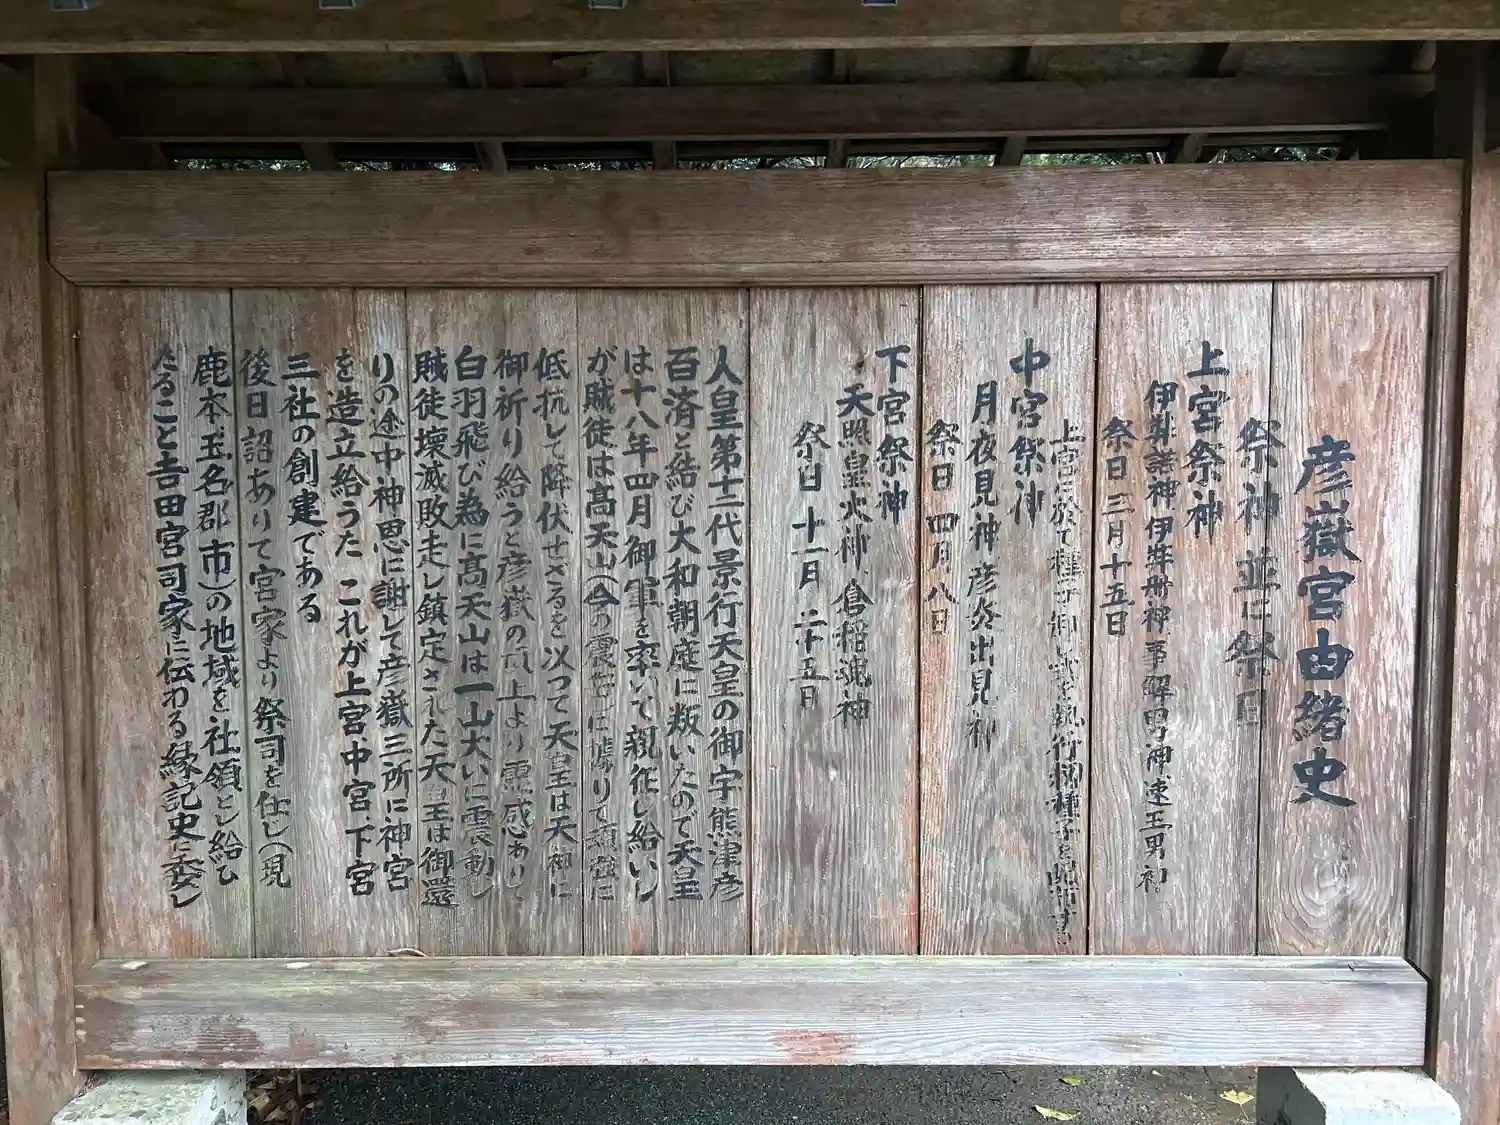 彦嶽宮由緒史
祭神並に祭日
上宮祭神
伊弉諾神伊弉冊神事解男神速玉男神
祭日三月十五日
上宮に於て種子御し式を執行 種子を配布す
中宮祭神
月夜見神彦炎出見神
祭日四月八日
下宮祭神
天照皇火神倉稲魂神
祭日十一月二十五日
人皇第十二代景行天皇の御宇熊津彦
百済と結び大和朝庭に叛いたので天皇
は十八年四月御軍を率いて親征し給いし
が賊徒は高天山(今の震岳)に據りて頑強に
低抗して降伏せざるを以つて天皇は天神に
御祈り給うと彦嶽の頂上より霊感ありし
白羽飛び為に高天山は一山大いに震動し
賊徒壊滅敗走し鎮定された天皇は御還
りの途中神恩に謝して彦嶽三所に神宮
を造立給うた これが上宮中宮下宮
三社の創建である
後日詔ありて宮家より祭司を仕じ(現
鹿本玉名郡市)の地域を社領とし給ひ
たること吉田宮司家に伝わる縁記史に委し